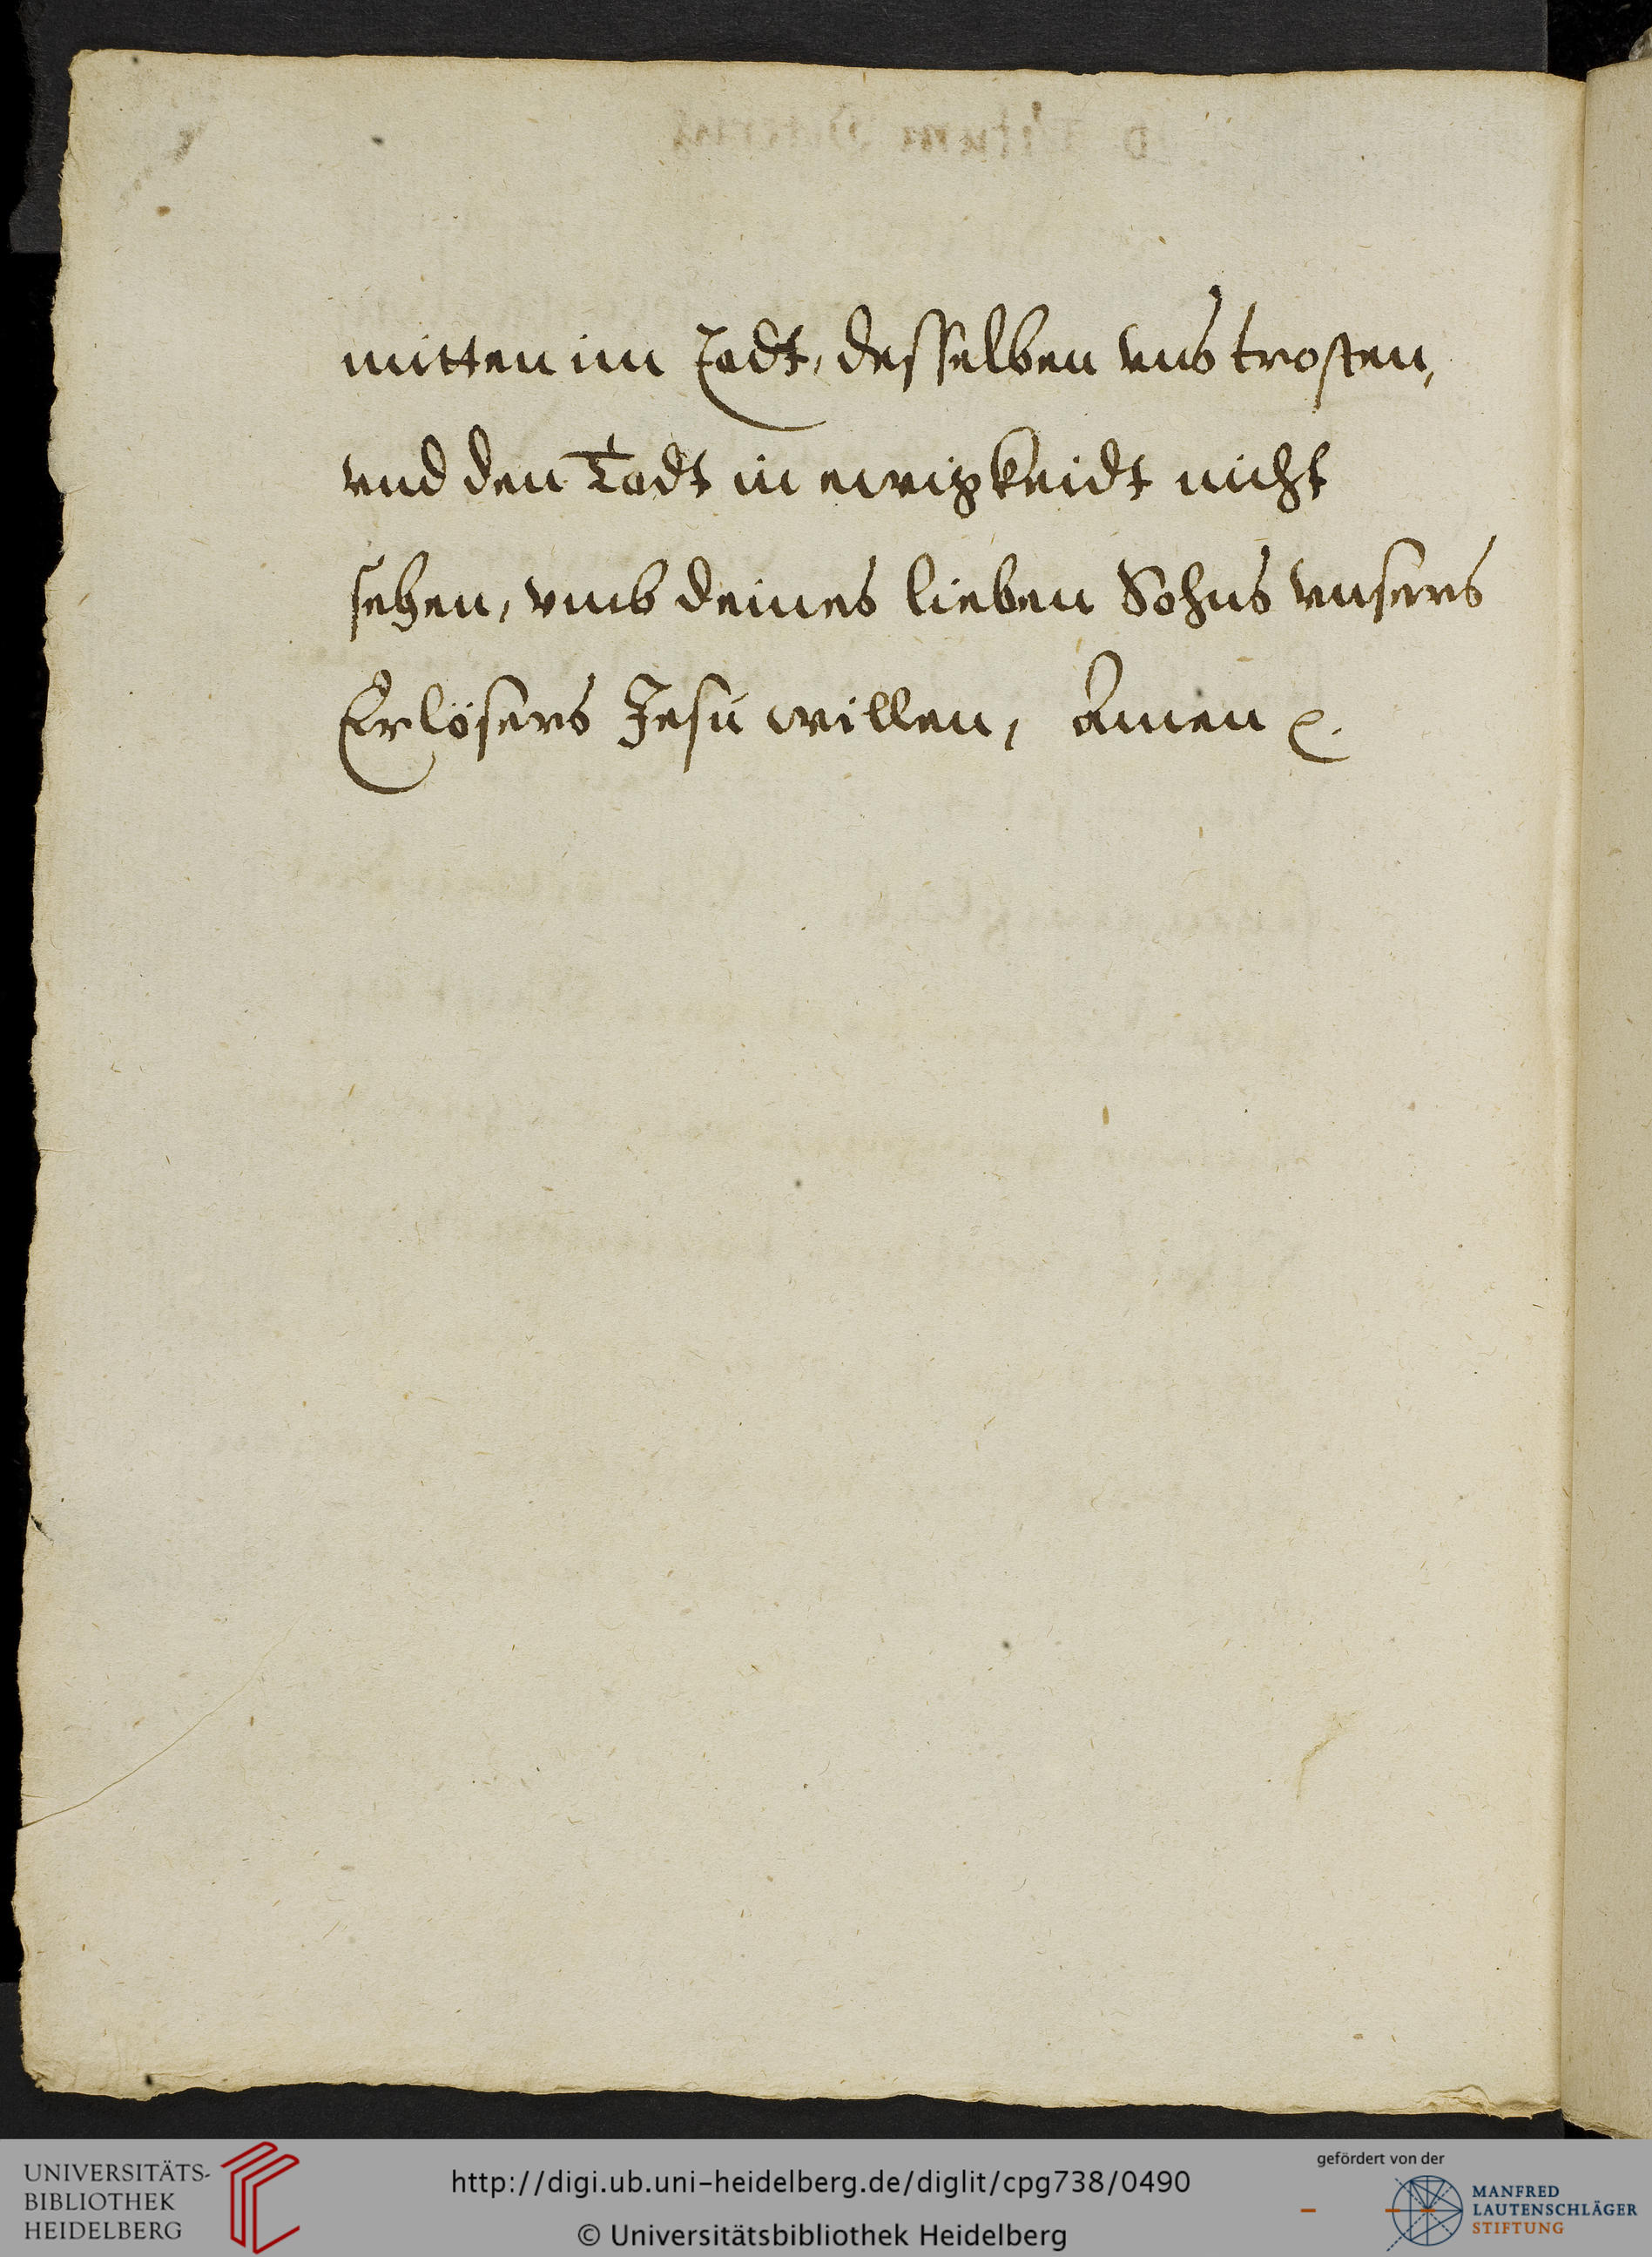 mitten im Todt, desselben vns trosten,
vnd den Todt in ewigkeidt nicht
sehen, vmb deines lieben Sohns vnsers
Erlösers Jesu willen, Amen
UNIVERSITÄTS-
BIBLIOTHEK
HEIDELBERG
http://digi.ub.uni-heidelberg.de/diglit/cpg738/0490
© Universitätsbibliothek Heidelberg
gefördert von der
MANFRED
LAUTENSCHLÄGER
STIFTUNG